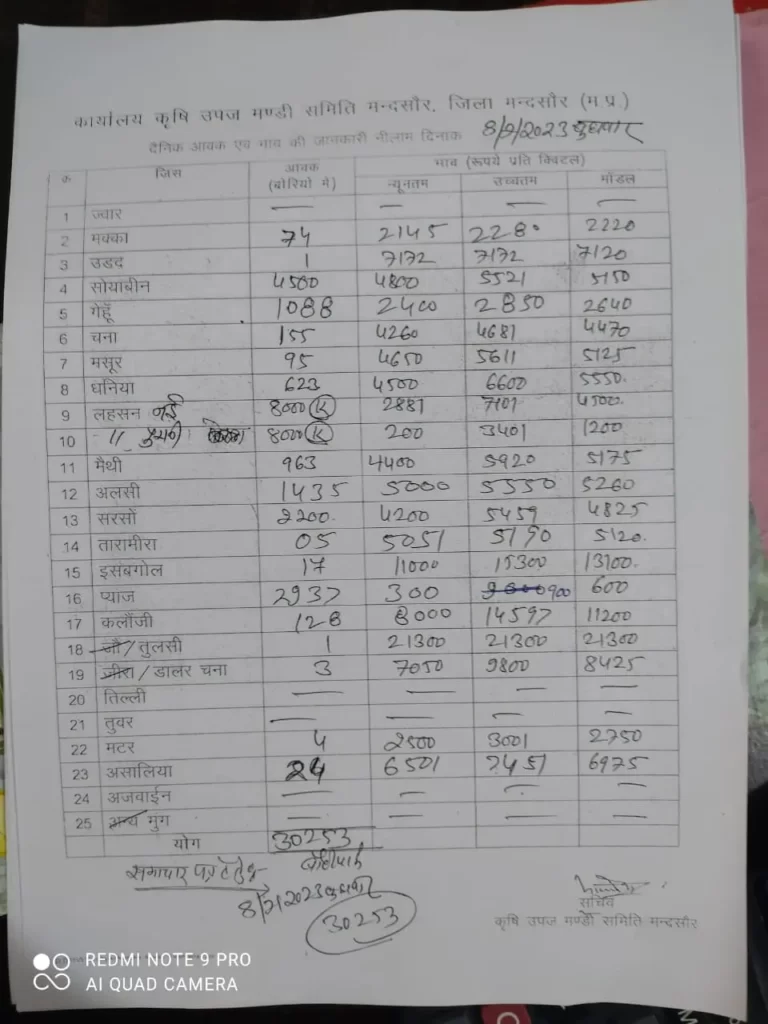 कार्यालय कृषि उपज मण्डी समिति मन्दसौर, जिला मन्दसौर (म.प्र.)
दैनिक आवक एवं भाव की जानकारी नीलाम दिनांक 8/2/2023 बुधवार
क्र जिंस आवक (बोरियो मे) भाव (रूपये प्रति क्विंटल)
न्यूनतम उच्चतम मॉडल
1 ज्वार — — — —
2 मक्का 74 2145 2280 2220
3 उडद 1 7172 7172 7120
4 सोयाबीन 4500 4800 5521 5150
5 गेहूॅ 1088 2400 2850 2640
6 चना 155 4260 4681 4470
7 मसूर 95 4650 5611 5125
8 धनिया 623 4500 6600 5550.
9 लहसन नई 8000 (K) 2881 7101 4500.
10 -11- पुरानी 8000 (K) 200 3401 1200
11 मैथी 963 4400 5920 5175
12 अलसी 1435 5000 5550 5260
13 सरसों 2200. 4200 5459 4825
14 तारामीरा 05 5051 5190 5120.
15 इसबगोल 17 11000 15300 13100.
16 प्याज 2937 300 900 600
17 कलौंजी 128 8000 14597 11200
18 जौ/तुलसी 1 21300 21300 21300
19 जीरा/डालर चना 3 7050 9800 8425
20 तिल्ली — — — —
21 तुवर — — — —
22 मटर 4 2500 3001 2750
23 असालिया 24 6501 7451 6975
24 अजवाईन — — — —
25 अन्य मुग — — — —
योग 30253
समाचार पत्र हेतु
8/2/2023 बुधवार
30253
सचिव
कृषि उपज मण्डी समिति मन्दसौर
REDMI NOTE 9 PRO
AI QUAD CAMERA